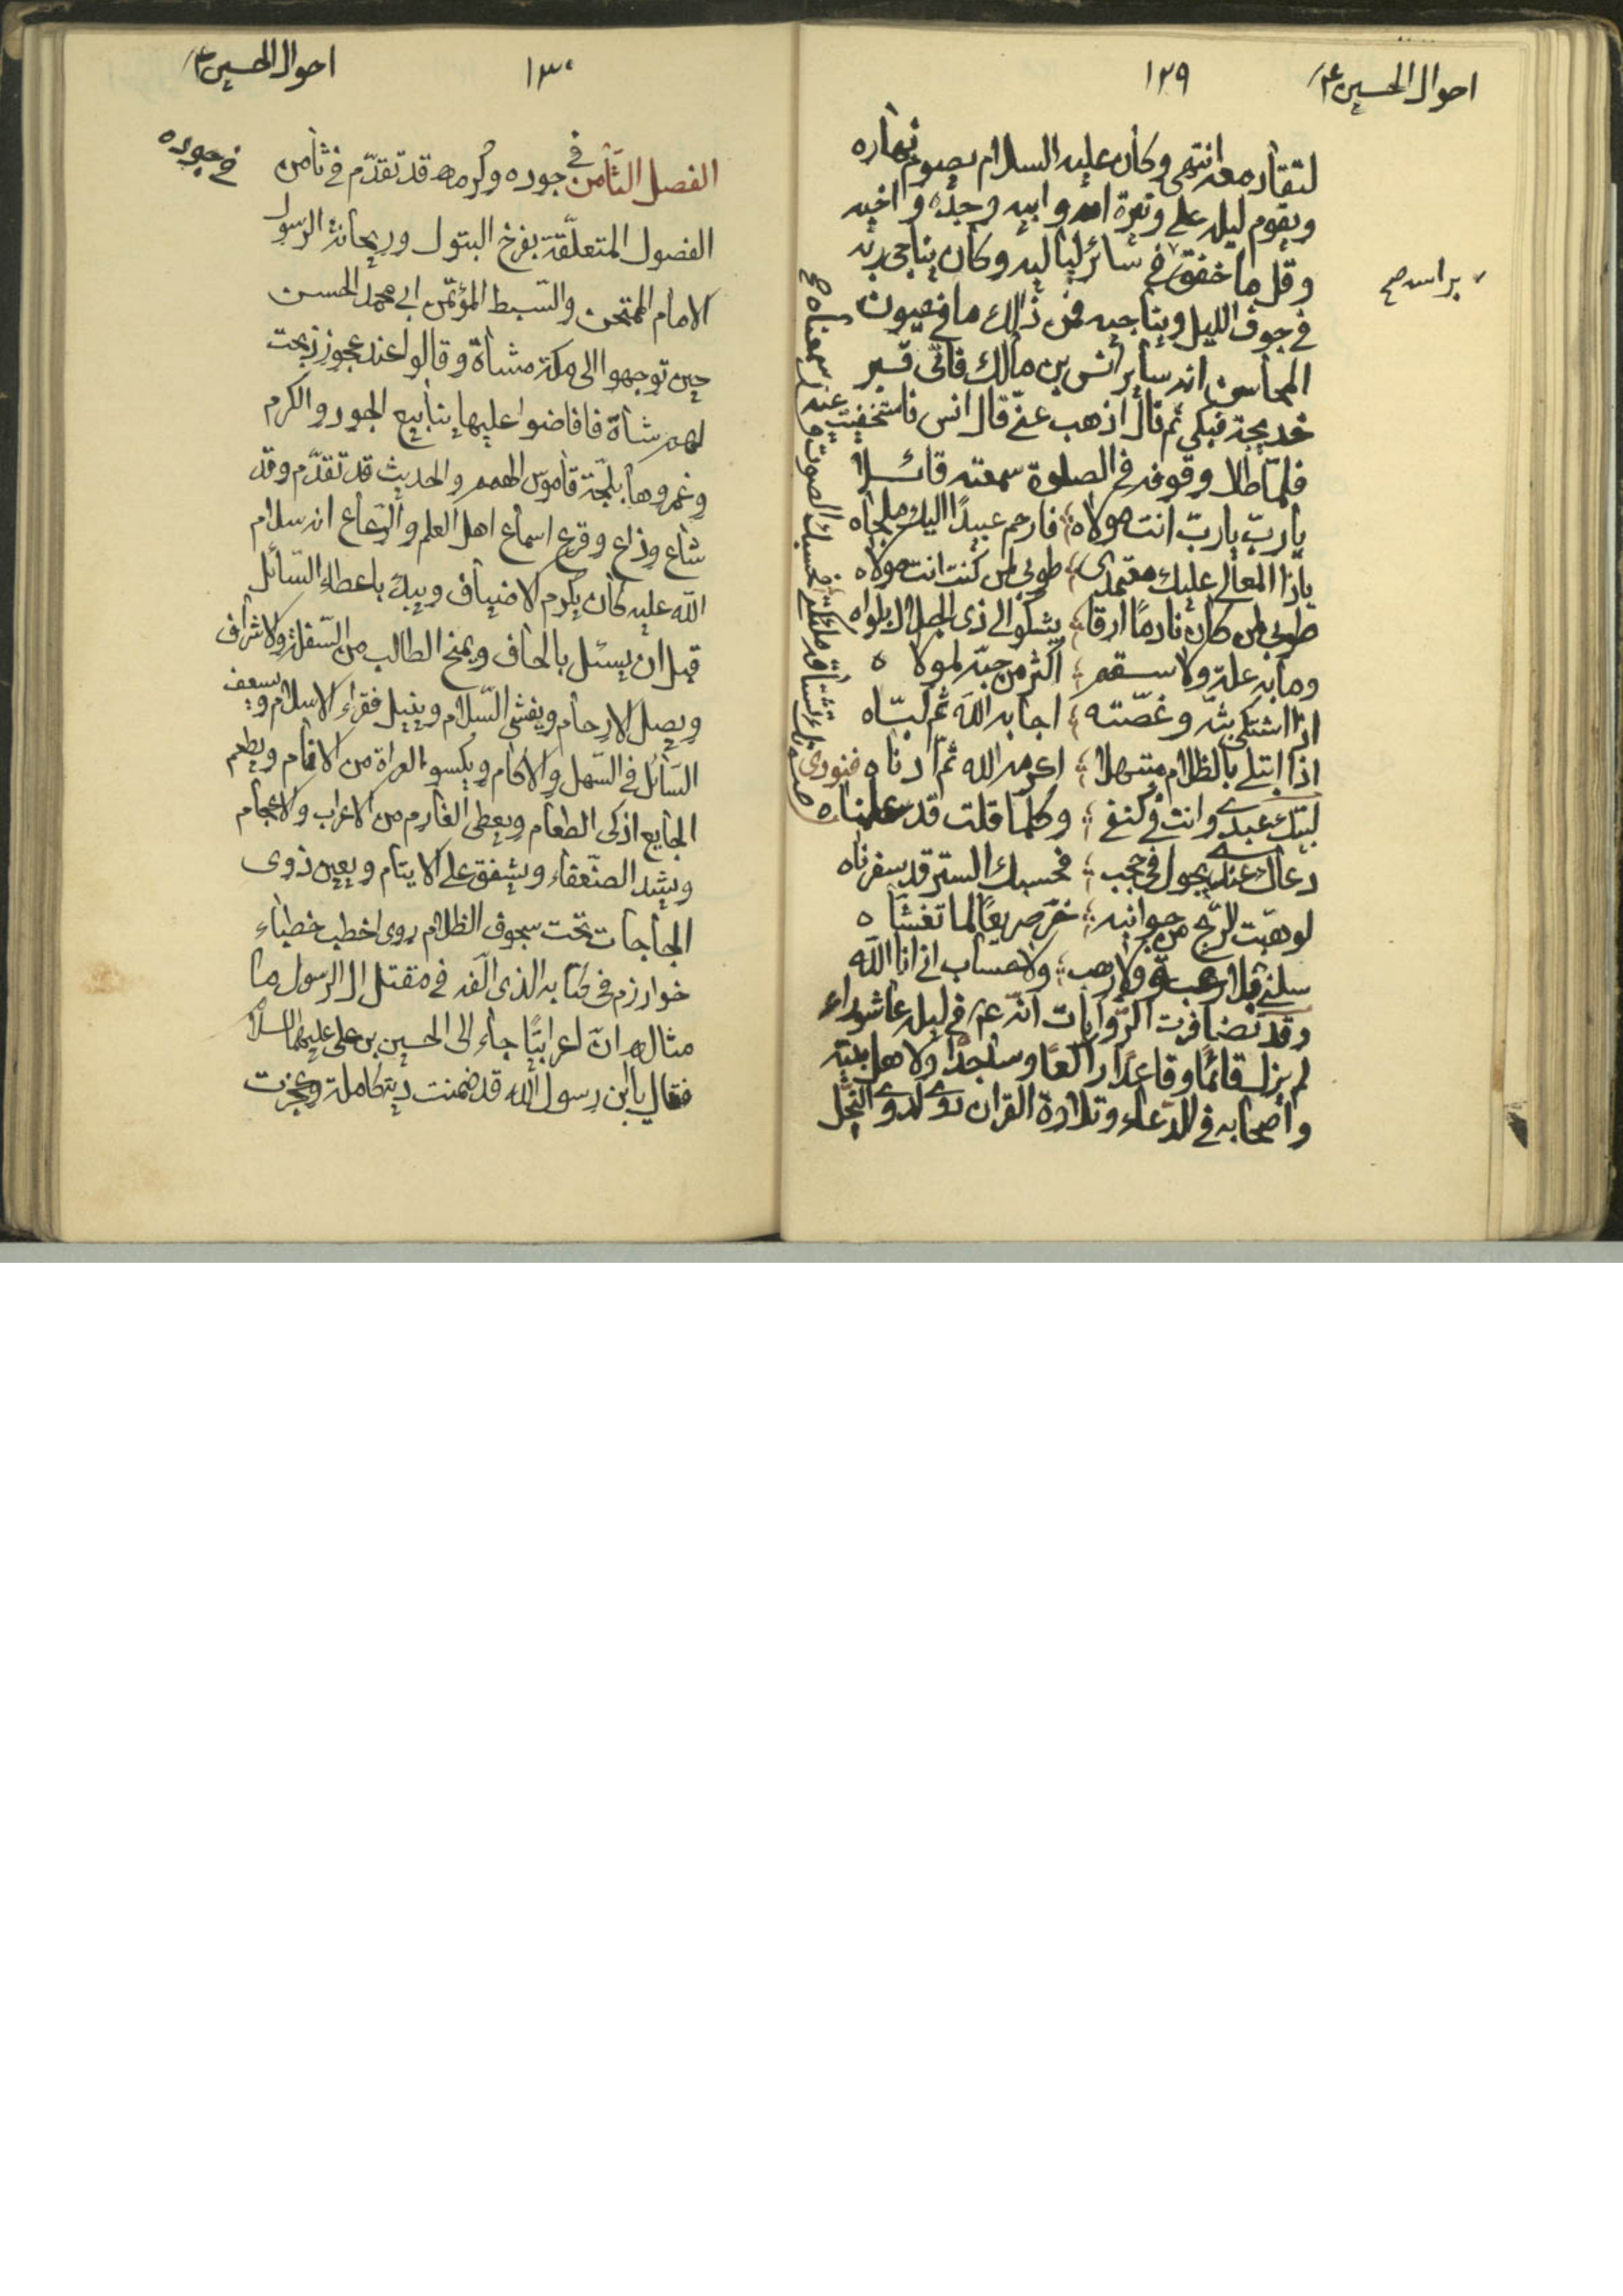 احوال الحسين ع
١٢٩
لتقادمه انتهى وكان عليه السلام يصوم نهاره
ويقوم ليله على وتيرة امه وابيه وجده واخيه
وقل ما خفق في سائر لياليه وكان يناجي ربه
براسه صح
في جوف الليل ويناجيه فمن ذلك ما في عيون
المحاسن انه ساير انس بن مالك فاتى قبر
خديجة فبكى ثم قال اذهب عني قال انس فاستخفيت عنه
فلما طال وقوفه في الصلوة سمعته قائلا
يا ربّ يا ربّ انت مولاه فارحم عبيدًا اليك ملجاه
يا ذا المعالي عليك معتمدي طوبى لمن كنت انت مولاه
طوبى لمن كان نادمًا ارقا يشكو الى ذي الجلال بلواه
وما به علة ولا سقم اكثر من حبّه لمولاه
اذا اشتكى بثّه وغصّته اجابه الله ثم لبّاه
اذا ابتلى بالظلام مبتهلا اكرمه الله ثم ادناه فنودي
لبيك عبدي وانت في كنفي وكلما قلت قد علمناه
صوتك تشتاقه ملائكتي فحسبك الصوت قد سمعناه صح
دعاك عندي يجول في حجب فحسبك الستر قد سفرناه
لو هبّت الريح من جوانبه خرّ صريعًا لما تغشاه
سلني بلا رغبة ولا رهب ولا حساب اني انا الله
وقد تضافرت الرّوايات انّه ع في ليلة عاشوراء
لم يزل قائمًا وقاعدًا راكعًا وساجدًا ولاهل بيته
واصحابه في الدّعاء وتلاوة القران دوي كدوي النحل
احوال الحسين ع
١٣٠
في جوده
الفصل الثّامن في جوده وكرمه قد تقدّم في ثامن
الفصول المتعلّقة بفرخ البتول وريحانة الرسول
الامام الممتحن والسّبط المؤتمن ابي محمد الحسن
حين توجهوا الى مكة مشاة وقالوا عند عجوز ذبحت
لهم شاة فافاضوا عليها ينابيع الجود والكرم
وغمروها بلجّة قاموس الهمم والحديث قد تقدّم وقد
شاع وذاع وقرع اسماع اهل العلم والرّعاع انه سلام
الله عليه كان يكرم الاضياف ويبدء باعطاء السّائل
قبل ان يسئل بالحاف ويمنح الطالب من السّفلة والاشراف
ويصل الارحام ويفشي السّلام وينيل فقراء الاسلام ويسعف
السّائل في السّهل والاكام ويكسو العراة من الانام ويطعم
الجايع ازكى الطعام ويعطي الغارم من الاعراب والاعجام
ويشد الضّعفاء ويشفق على الايتام ويعين ذوي
الحاجات تحت سجوف الظلام روى اخطب خطباء
خوارزم في كتابه الذي الّفه في مقتل ال الرسول ما
مثاله انّ اعرابيًّا جاء الى الحسين بن علي عليهما السلام
فقال يا ابن رسول الله قد ضمنت دية كاملة وعجزت